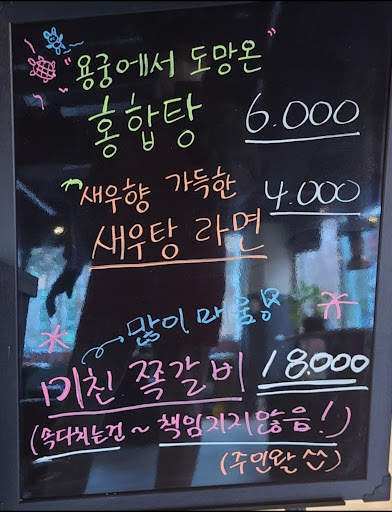 "용궁에서 도망온"
홍합탕 6.000
새우향 가득한
새우탕 라면 4.000
많이 매움
미친 쪽갈비 18.000
(속다치는건 ~ 책임지지않음!)
(주인왈 ^^)